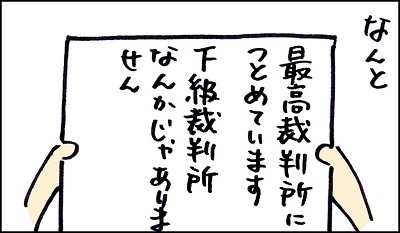 なんと
最高裁判所に
つとめています
下級裁判所
なんかじゃありま
せん